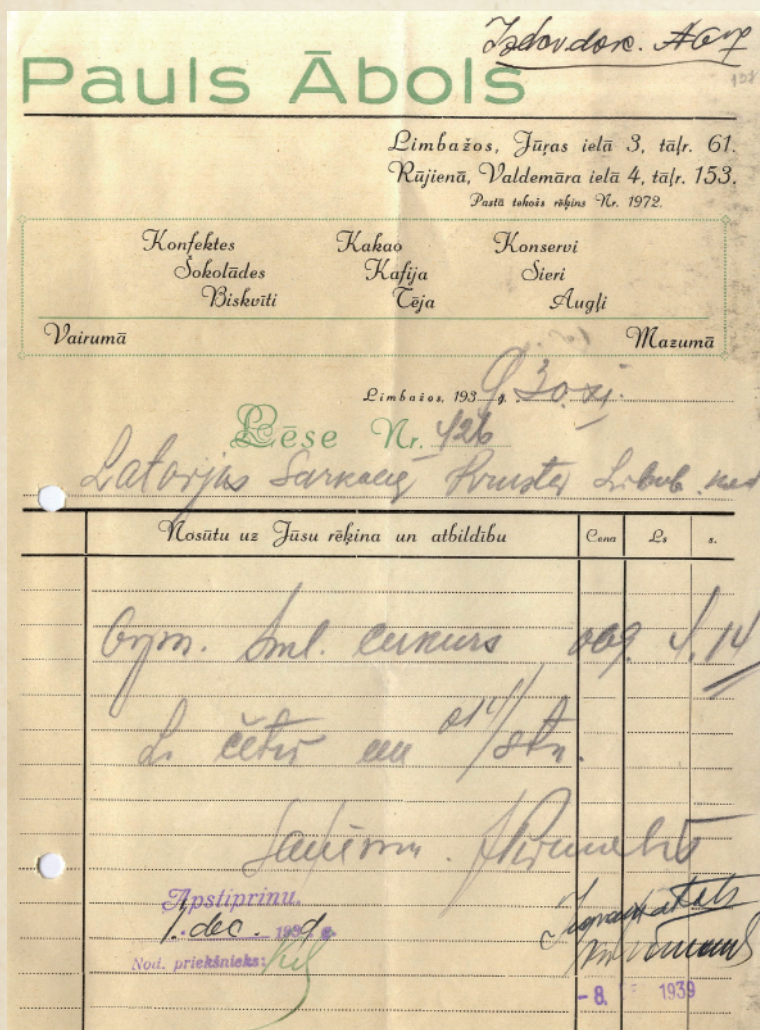 Izdev. dok.
Pauls Ābols
Limbažos, Jūŗas ielā 3, tāļr. 61.
Rūjienā, Valdemāra ielā 4, tāļr. 153.
Pasta tekošs rēķins Nr. 1972.
Konfektes Kakao Konservi
Šokolādes Kafija Sieri
Biskvīti Tēja Augļi
Vairumā Mazumā
Limbažos, 1939 g. 30. XI.
Lēse Nr. 426
Latvijas Sarkanā Krusta
Nosūtu uz Jūsu rēķina un atbildību Cena Ls s.
6 gr. sml. cukurs 069 4.14
Ls četri un 014/stn.
Saņēmu.
Apstiprinu.
1. dec. 1939 g.
Nod. priekšnieks:
- 8. 1939